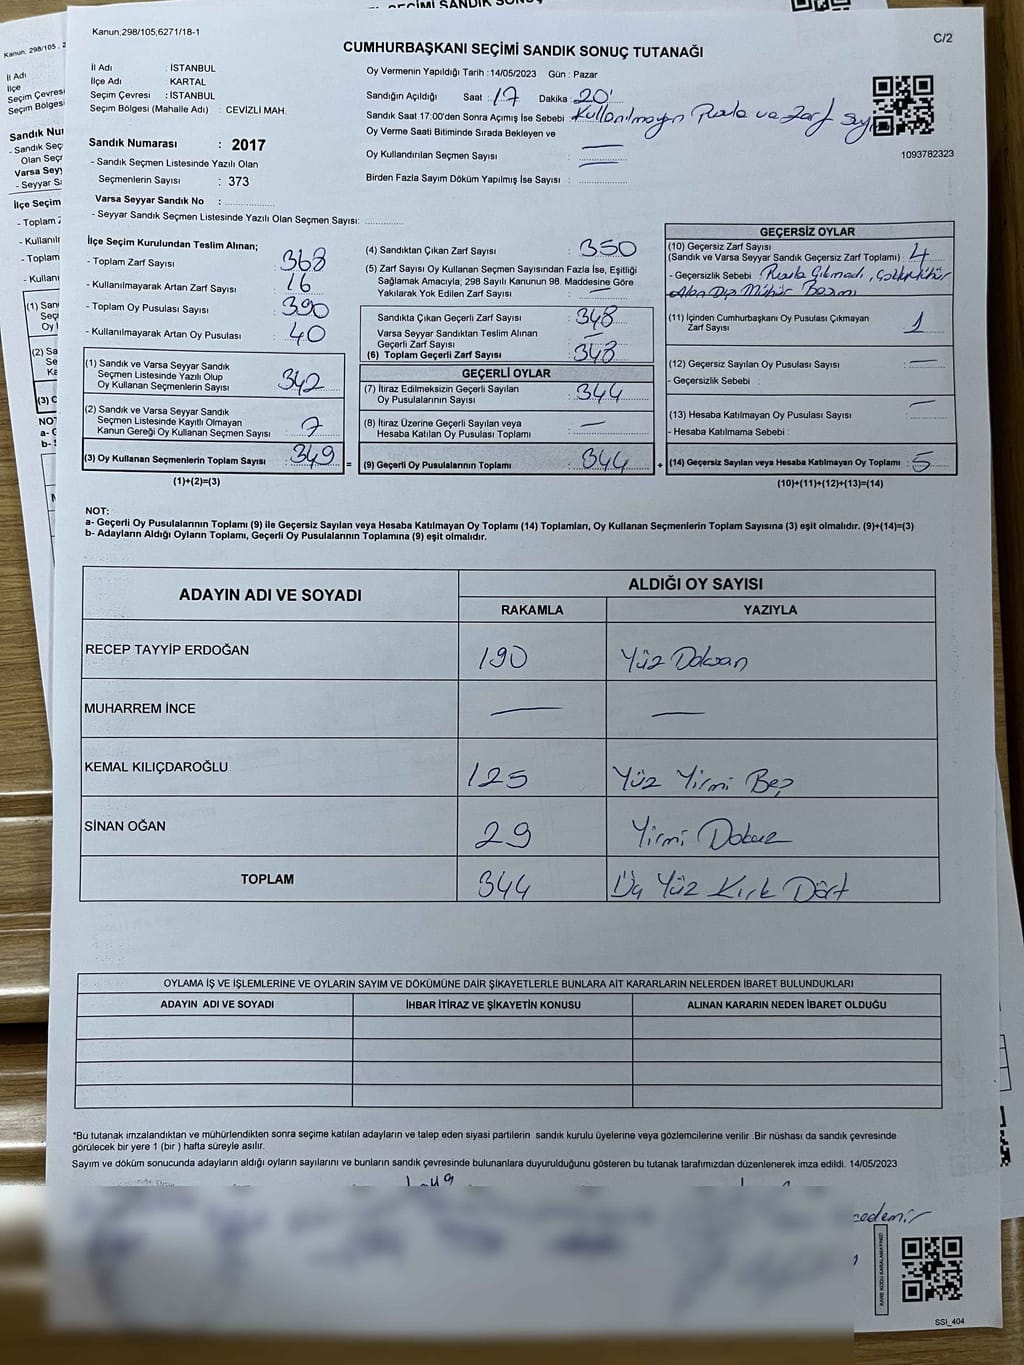 Kanun;298/105,6271/18-1
C/2
CUMHURBAŞKANI SEÇİMİ SANDIK SONUÇ TUTANAĞI
İl Adı : İSTANBUL
İlçe Adı : KARTAL
Seçim Çevresi : İSTANBUL
Seçim Bölgesi (Mahalle Adı) : CEVİZLİ MAH.
Sandık Numarası : 2017
- Sandık Seçmen Listesinde Yazılı Olan
Seçmenlerin Sayısı : 373
Varsa Seyyar Sandık No :
- Seyyar Sandık Seçmen Listesinde Yazılı Olan Seçmen Sayısı:
Oy Vermenin Yapıldığı Tarih : 14/05/2023 Gün : Pazar
Sandığın Açıldığı Saat : 17 Dakika : 20
Sandık Saat 17:00'den Sonra Açımış İse Sebebi Kullanılmayan Pusula ve Zarf Say
Oy Verme Saati Bitiminde Sırada Bekleyen ve
Oy Kullandırılan Seçmen Sayısı : —
Birden Fazla Sayım Döküm Yapılmış İse Sayısı :
1093782323
İlçe Seçim Kurulundan Teslim Alınan;
- Toplam Zarf Sayısı : 368
- Kullanılmayarak Artan Zarf Sayısı : 16
- Toplam Oy Pusulası Sayısı : 390
- Kullanılmayarak Artan Oy Pusulası : 40
(1) Sandık ve Varsa Seyyar Sandık
Seçmen Listesinde Yazılı Olup
Oy Kullanan Seçmenlerin Sayısı : 342
(2) Sandık ve Varsa Seyyar Sandık
Seçmen Listesinde Kayıtlı Olmayan
Kanun Gereği Oy Kullanan Seçmen Sayısı : 7
(3) Oy Kullanan Seçmenlerin Toplam Sayısı : 349
(1)+(2)=(3)
(4) Sandıktan Çıkan Zarf Sayısı : 350
(5) Zarf Sayısı Oy Kullanan Seçmen Sayısından Fazla İse, Eşitliği
Sağlamak Amacıyla; 298 Sayılı Kanunun 98. Maddesine Göre
Yakılarak Yok Edilen Zarf Sayısı : —
Sandıkta Çıkan Geçerli Zarf Sayısı : 348
Varsa Seyyar Sandıktan Teslim Alınan
Geçerli Zarf Sayısı : —
(6) Toplam Geçerli Zarf Sayısı : 348
GEÇERLİ OYLAR
(7) İtiraz Edilmeksizin Geçerli Sayılan
Oy Pusulalarının Sayısı : 344
(8) İtiraz Üzerine Geçerli Sayılan veya
Hesaba Katılan Oy Pusulası Toplamı : —
= (9) Geçerli Oy Pusulalarının Toplamı : 344
GEÇERSİZ OYLAR
(10) Geçersiz Zarf Sayısı
(Sandık ve Varsa Seyyar Sandık Geçersiz Zarf Toplamı) : 4
- Geçersizlik Sebebi : Pusula Çıkmadı,
Alan Dışı Mühür Basımı
(11) İçinden Cumhurbaşkanı Oy Pusulası Çıkmayan
Zarf Sayısı : 1
(12) Geçersiz Sayılan Oy Pusulası Sayısı : —
- Geçersizlik Sebebi :
(13) Hesaba Katılmayan Oy Pusulası Sayısı : —
- Hesaba Katılmama Sebebi :
+ (14) Geçersiz Sayılan veya Hesaba Katılmayan Oy Toplamı : 5
(10)+(11)+(12)+(13)=(14)
NOT:
a- Geçerli Oy Pusulalarının Toplamı (9) ile Geçersiz Sayılan veya Hesaba Katılmayan Oy Toplamı (14) Toplamları, Oy Kullanan Seçmenlerin Toplam Sayısına (3) eşit olmalıdır. (9)+(14)=(3)
b- Adayların Aldığı Oyların Toplamı, Geçerli Oy Pusulalarının Toplamına (9) eşit olmalıdır.
ADAYIN ADI VE SOYADI ALDIĞI OY SAYISI
RAKAMLA YAZIYLA
RECEP TAYYİP ERDOĞAN 190 Yüz Doksan
MUHARREM İNCE — —
KEMAL KILIÇDAROĞLU 125 Yüz Yirmi Beş
SİNAN OĞAN 29 Yirmi Dokuz
TOPLAM 344 Üç Yüz Kırk Dört
OYLAMA İŞ VE İŞLEMLERİNE VE OYLARIN SAYIM VE DÖKÜMÜNE DAİR ŞİKAYETLERLE BUNLARA AİT KARARLARIN NELERDEN İBARET BULUNDUKLARI
ADAYIN ADI VE SOYADI İHBAR İTİRAZ VE ŞİKAYETİN KONUSU ALINAN KARARIN NEDEN İBARET OLDUĞU
*Bu tutanak imzalandıktan ve mühürlendikten sonra seçime katılan adayların ve talep eden siyasi partilerin sandık kurulu üyelerine veya gözlemcilerine verilir .Bir nüshası da sandık çevresinde
görülecek bir yere 1 (bir ) hafta süreyle asılır.
Sayım ve döküm sonucunda adayların aldığı oyların sayılarını ve bunların sandık çevresinde bulunanlara duyurulduğunu gösteren bu tutanak tarafımızdan düzenlenerek imza edildi. 14/05/2023
KARE KODU KARALAMAYINIZ!
SSI_404